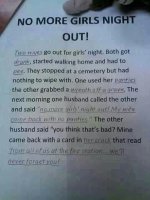 NO MORE GIRLS NIGHT
OUT!
Two wives go out for girls' night. Both got
drunk, started walking home and had to
pee. They stopped at a cemetery but had
nothing to wipe with. One used her panties
the other grabbed a wreath off a grave. The
next morning one husband called the other
and said "no more girls' night out! My wife
came back with no panties." The other
husband said "you think that's bad? Mine
came back with a card in her crack that read
'From all of us at the fire station... we'll
never forget you!'